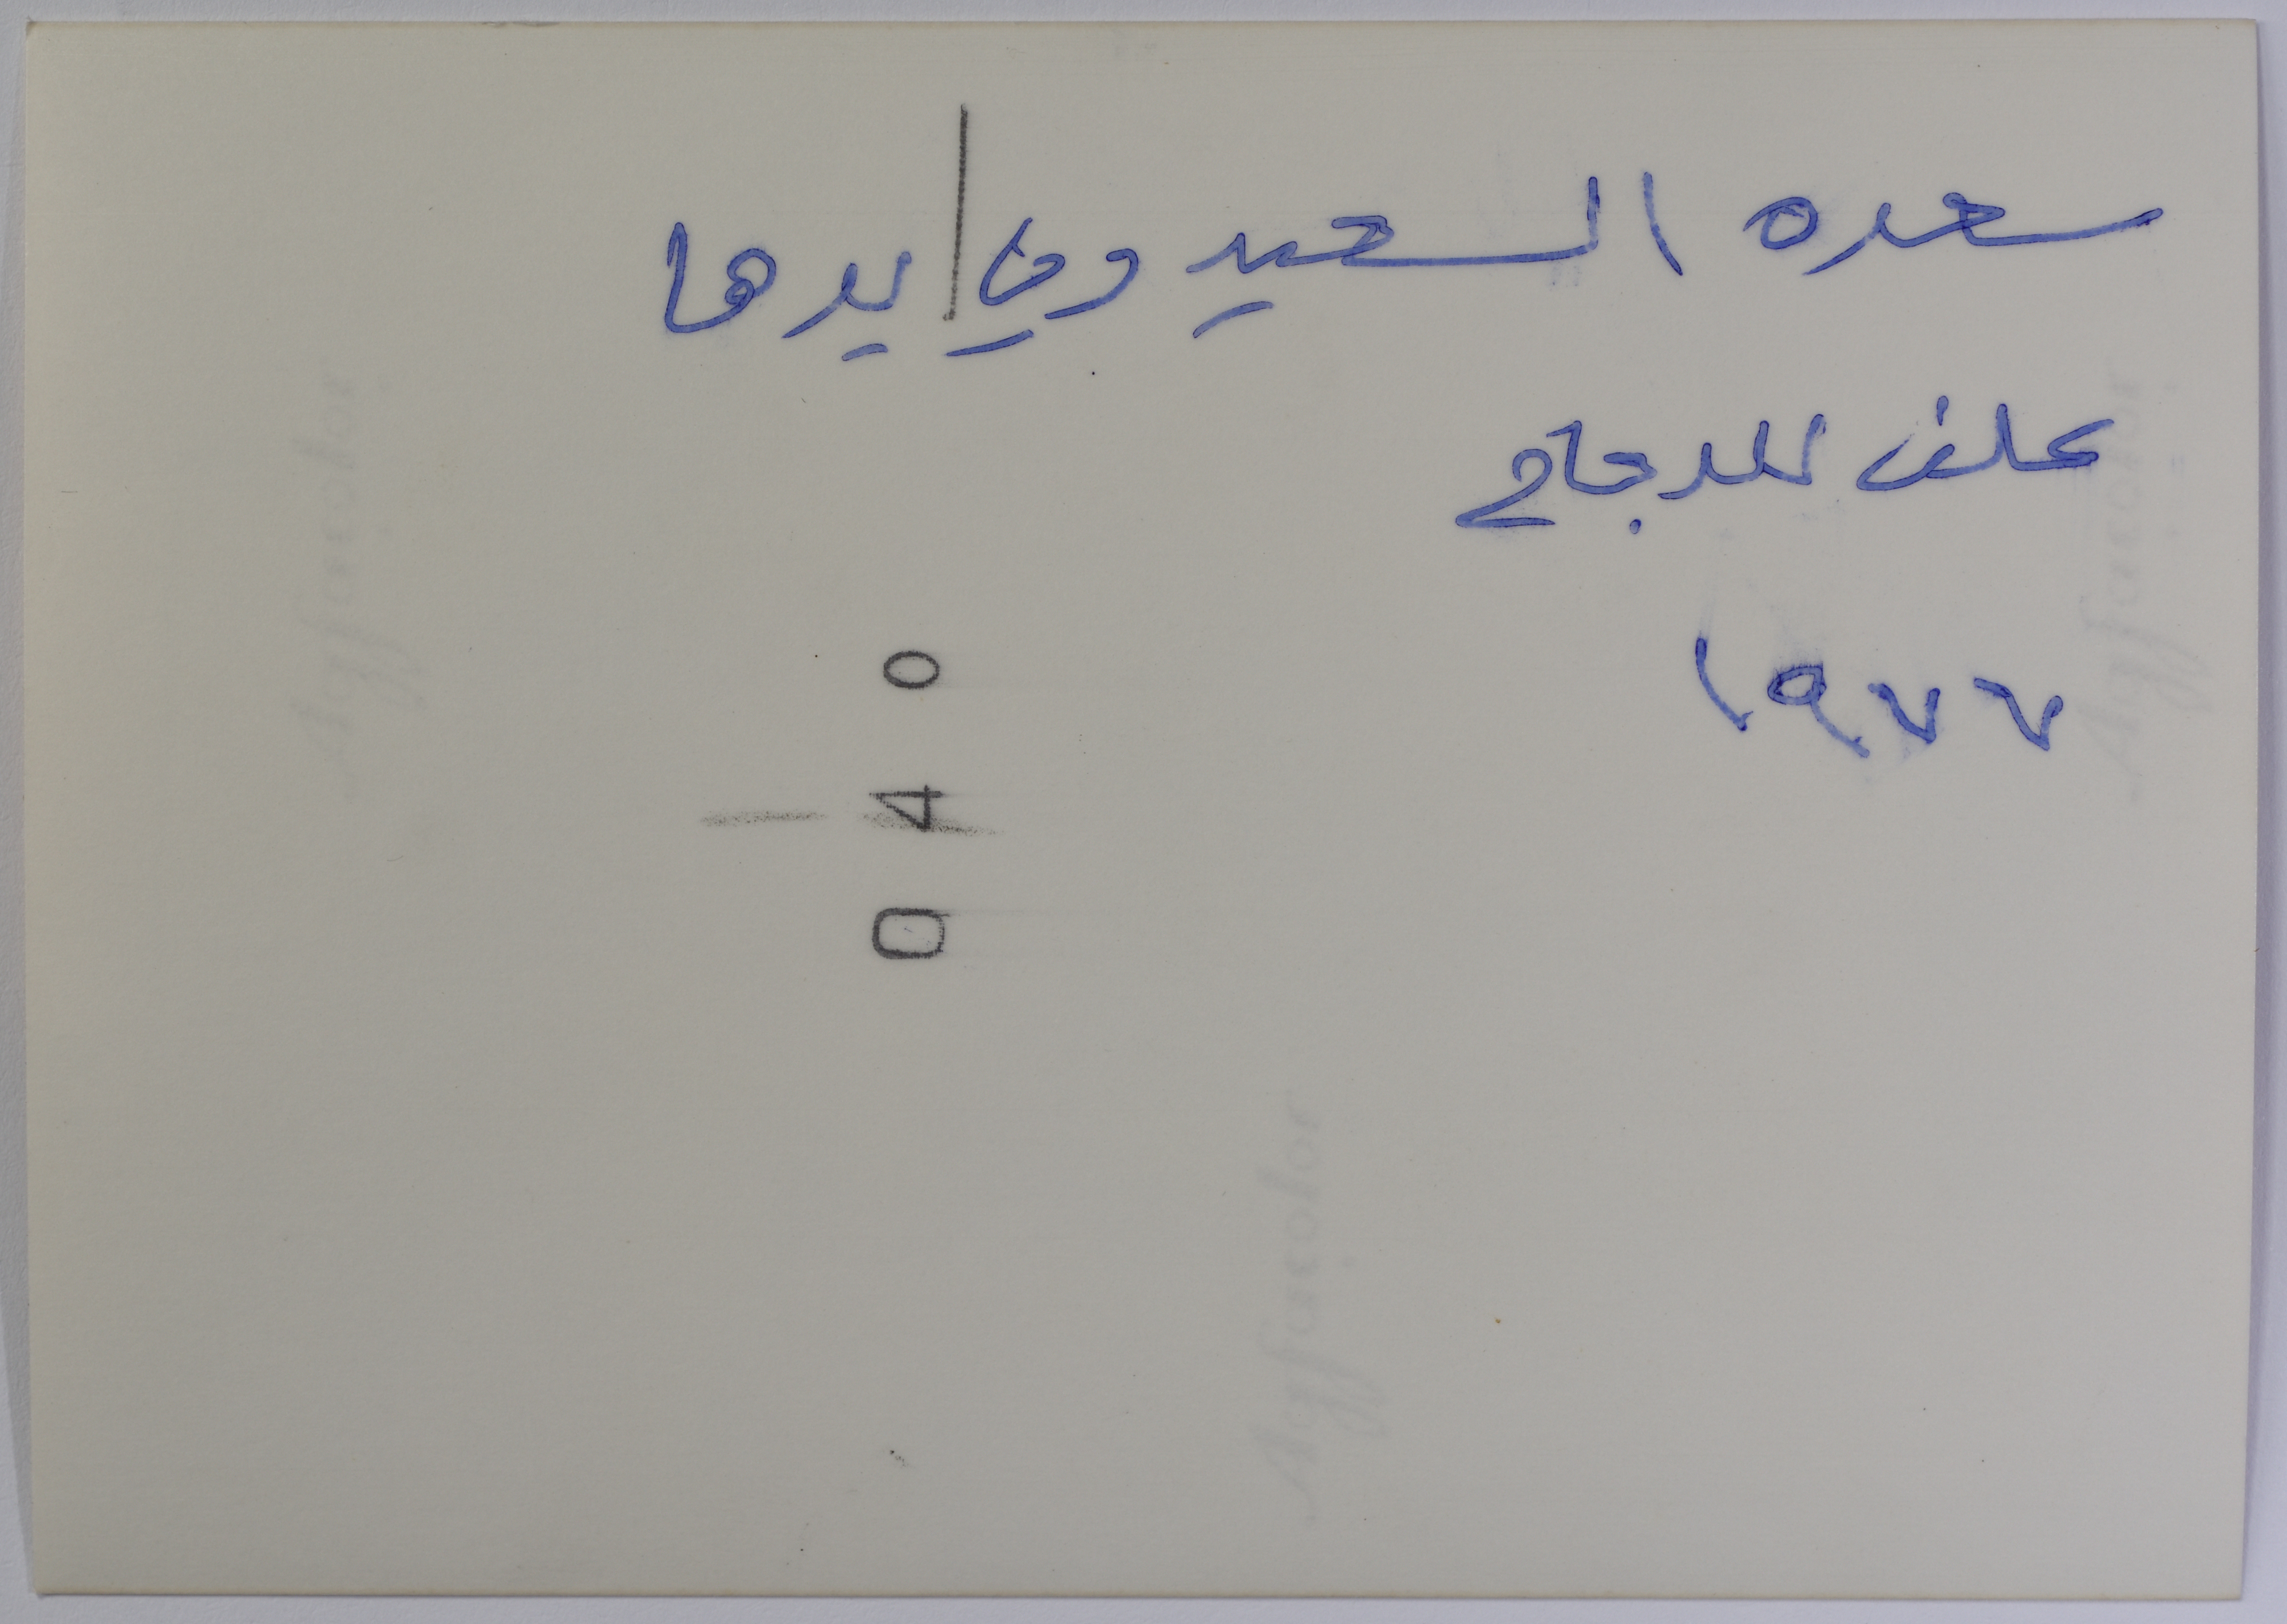 سعده السعيدوي / يدها
علف للدجاج
١٩٧٧
0 4 0
Agfacolor
Agfacolor
Agfacolor